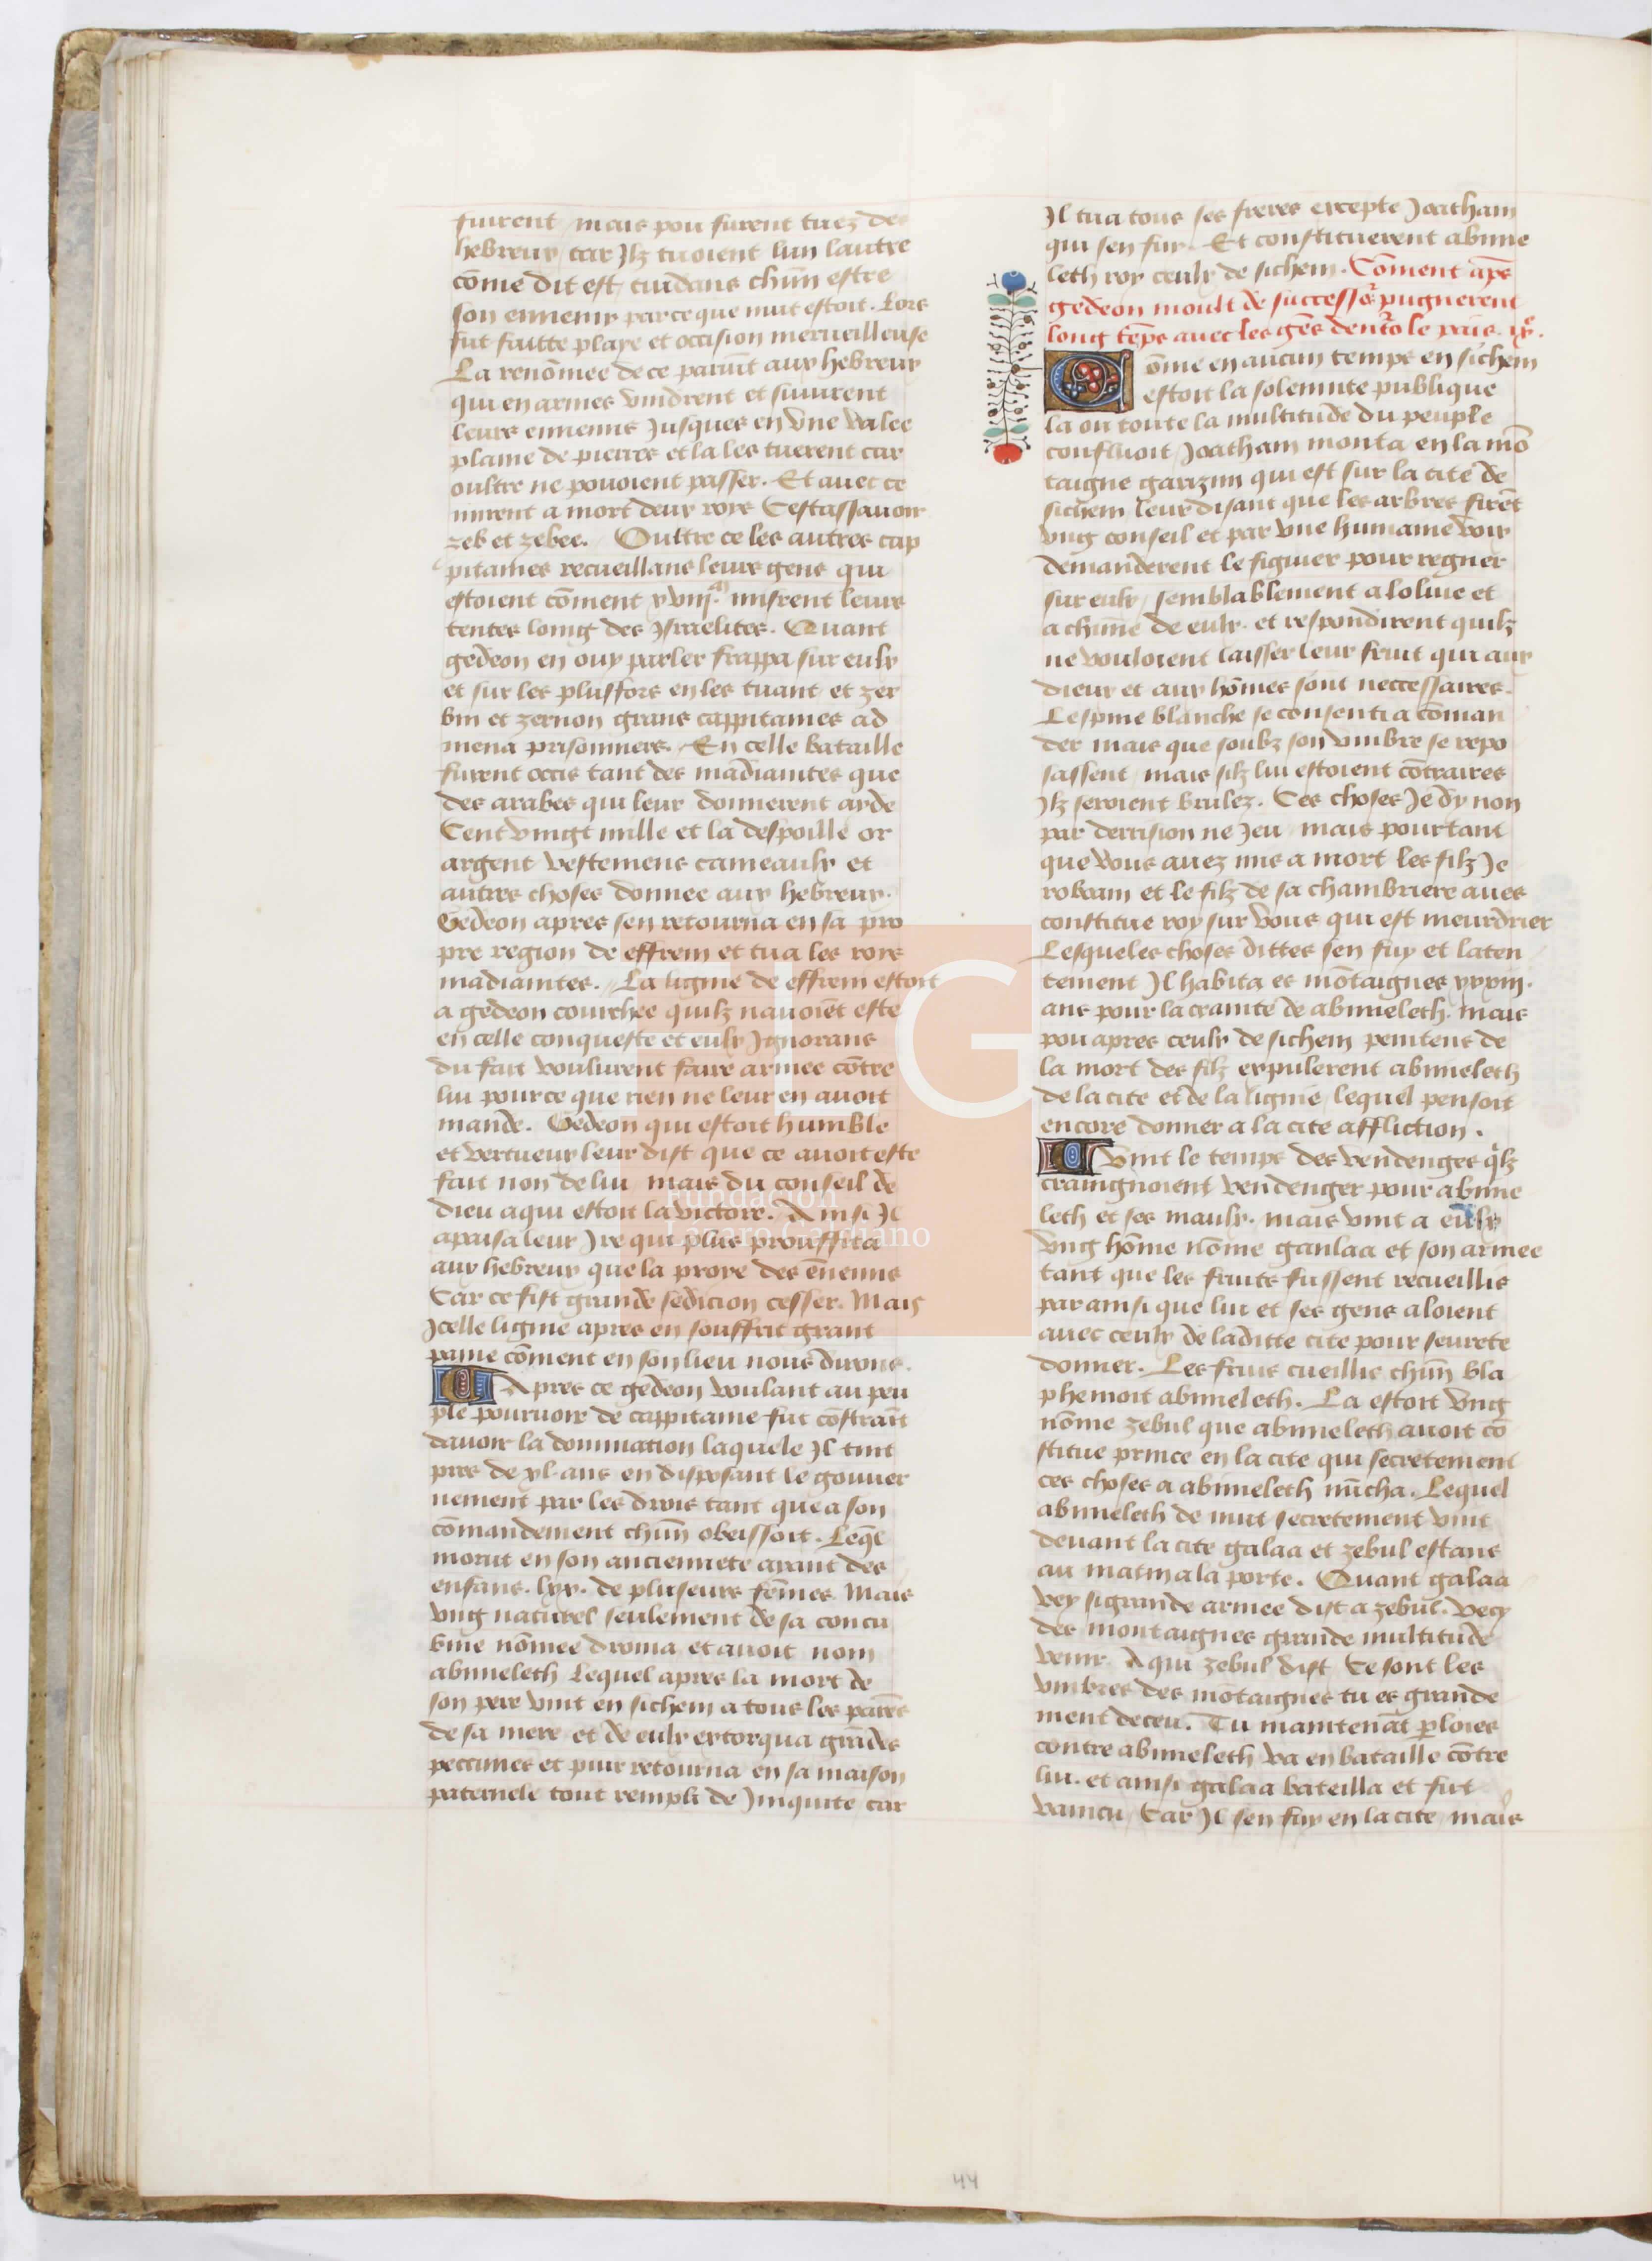 fuirent / mais pou furent tuez des
hebreux / car Jlz tuoient lun lautre
cōme dit est / cuidans chūn estre
son ennemy parce que nuit estoit. Lors
fut faitte playe et occision merueilleuse
La renōmee de ce paruīt aux hebreux
qui en armes vindrent et suiuirent
leurs ennemis Jusques en vne valee
plaine de pierres et la les tuerent car
oultre ne pouoient passer. Et auec ce
mirent a mort deux roys Cestassauoir
zeb et zebee. Oultre ce les autres cap
pitaines recueillans leurs gens qui
estoient cōment xviij.ᵐ misrent leurs
tentes loing des Jsraelites. Quant
gedeon en ouy parler frappa sur eulx
et sur les plusfors en les tuant et zer
bin et zernon grans cappitaines ad
mena prisonniers. En celle bataille
furent occis tant des madianites que
des arabes qui leur donnerent ayde
Cent vingt mille et la despoille or
argent vestemens cameaulx et
autres choses donnee aux hebreux.
Gedeon apres sen retourna en sa pro
pre region de effrem et tua les roys
madianites. La lignie de effrem estoit
a gedeon courchee quilz nauoiēt este
en celle conqueste et eulx Jgnorans
du fait voulurent faire armee cōtre
lui pource que rien ne leur en auoit
mande. Gedeon qui estoit humble
et vertueux leur dist que ce auoit este
fait non de lui mais du conseil de
dieu a qui estoit la victore. Ainsi Jl
apaisa leur Jre qui plus prouffita
aux hebreux que la proye des ēnemis
Car ce fist grande sedicion cesser. Mais
Jcelle lignie apres en souffrit grant
paine cōment en son lieu nous dirons.
Apres ce gedeon voulant au peu
ple pouruoir de cappitaine fut cōstraīt
dauoir la domination laquele Jl tint
pres de xl. ans en disposant le gouuer
nement par les drois tant que a son
cōmandement chūn obeissoit. Leq̄l
morut en son anciennete ayant des
enfans .lxx. de pluseurs fēmes. Mais
vng naturel seulement de sa concu
bine nōmee droma et auoit nom
abimeleth Lequel apres la mort de
son pere vint en sichem a tous les parēs
de sa mere et de eulx extorqua grādes
peccunes et puis retourna en sa maison
paternele tout rempli de Jniquite car
Jl tua tous ses freres excepte Joatham
qui sen fuy. Et constituerent abime
leth roy ceulx de sichem. Cōment apͤs
gedeon moult de successoͬs pugnerent
long tēps auec les gēs dentͦ le pais. ixͤ.
Cōme en aucun temps en sichem
estoit la solemnite publique
la ou toute la multitude du peuple
confluoit / Joatham monta en la mō
taigne garizim qui est sur la cite de
sichem leur disant que les arbres firēt
vng conseil et par vne humaine voix
demanderent le figuier pour regner
sur eulx / semblablement a loliue et
a chūne de eulx. et respondirent quilz
ne vouloient laisser leur fruit qui aux
dieux et aux hōmes sont neccessaires.
Lespine blanche se consenti a cōman
der mais que soubz son vmbre se repo
sassent / mais silz lui estoient cōtraires
Jlz seroient brulez. Ces choses Je dy non
par derrision ne Jeu / mais pourtant
que vous auez mis a mort les filz Je
robaam et le filz de sa chambriere aues
constitue roy sur vous qui est meurdrier
Lesqueles choses dittes sen fuy et laten
tement Jl habita es mōtaignes xxxiij.
ans pour la crainte de abimeleth. mais
pou apres ceulx de sichem penitens de
la mort des filz expulerent abimeleth
de la cite et de la lignie / lequel pensoit
encore donner a la cite affliction.
Uint le temps des vendenges qͥlz
craingnoient vendenger pour abime
leth et ses maulx. mais vint a eulx
vng hōme nōme ganlaa et son armee
tant que les fruits fussent recueillis
par ainsi que lui et ses gens aloient
auec ceulx de laditte cite pour seurete
donner. Les fruis cueillis chūn bla
phemoit abimeleth. La estoit vng
nōme zebul que abimeleth auoit cō
stitue prince en la cite qui secretement
ces choses a abimeleth nūcha. Lequel
abimeleth de nuit secretement vint
deuant la cite galaa et zebul estans
au matin a la porte. Quant galaa
vey si grande armee dist a zebul. vecy
des montaignes grande multitude
venir. A qui zebul dist Ce sont les
vmbres des mōtaignes tu es grande
ment deceu. Tu maintenāt ꝑloies
contre abimeleth va en bataille cōtre
lui. et ainsi galaa batailla et fut
vaincu / Car Jl sen fuy en la cite / mais
44
Fundación
Lázaro Galdiano